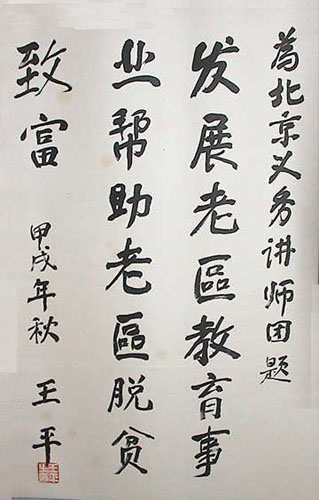 为北京义务讲师团题
发展老區教育事
业帮助老區脱贫
致富
甲戌年秋 王平